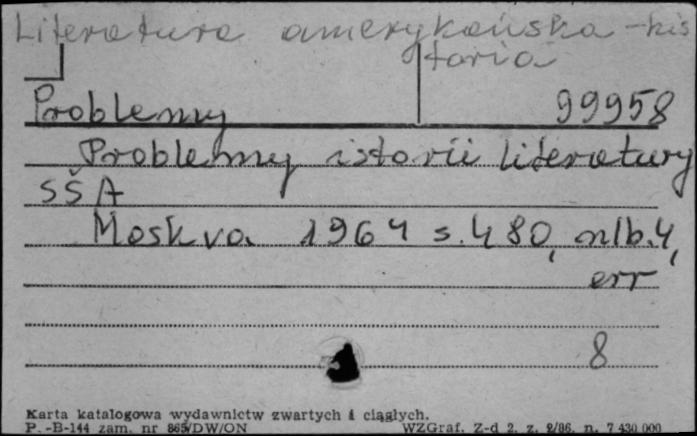 Literatura amerykańska - his
toria
Problemy 99958
Problemy istorii literatury
SŠA
Moskva 1964 s. 480, nlb. 4,
err
8
Karta katalogowa wydawnictw zwartych i ciągłych.
P. -B-144 zam. nr 865/DW/ON WZGraf. Z-d 2. z. 2/86. n. 7 430 000